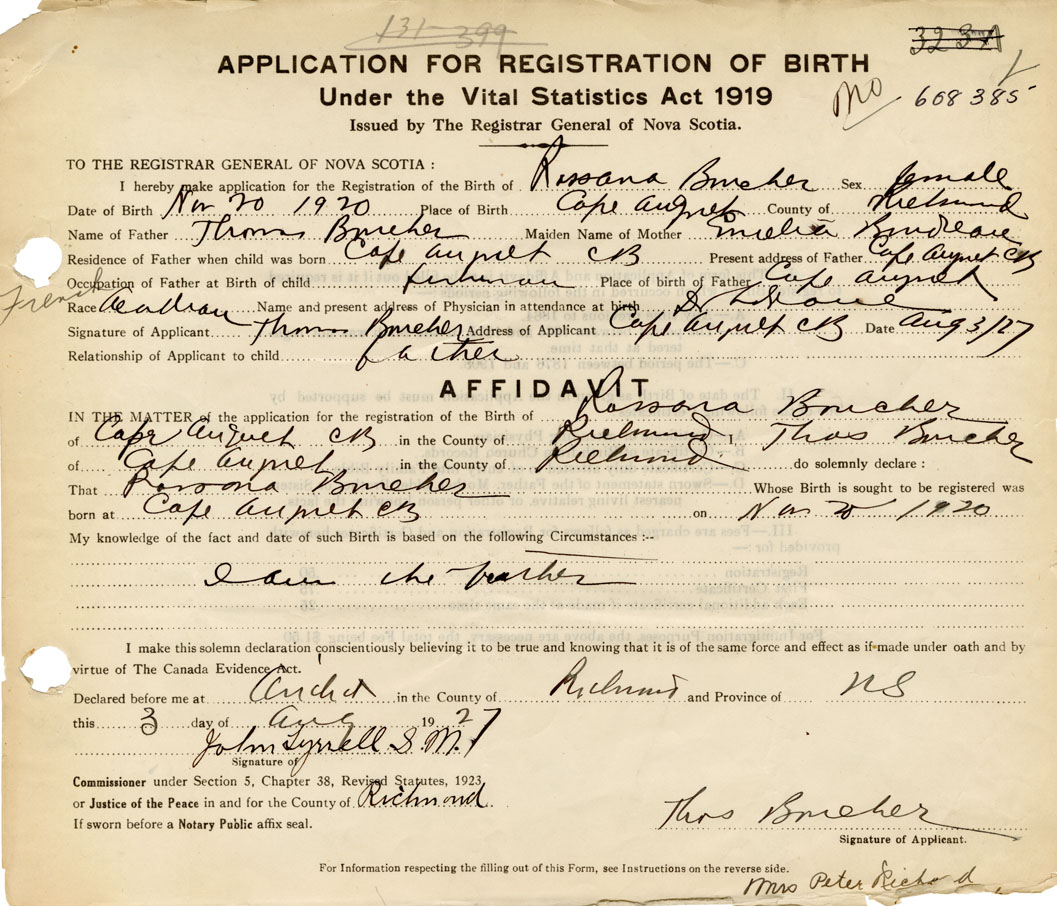 131-399
APPLICATION FOR REGISTRATION OF BIRTH
Under the Vital Statistics Act 1919
Mo 608385
Issued by The Registrar General of Nova Scotia.
TO THE REGISTRAR GENERAL OF NOVA SCOTIA :
I hereby make application for the Registration of the Birth of Rossana Boucher Sex female
Date of Birth Nov 20 1920 Place of Birth Cape Auguet County of Richmond
Name of Father Thomas Boucher Maiden Name of Mother Boudreau
Residence of Father when child was born Cape Auguet CB Present address of Father Cape Auguet CB
Occupation of Father at Birth of child fisherman Place of birth of Father Cape Auguet
French
Race Acadian Name and present address of Physician in attendance at birth
Signature of Applicant Thomas Boucher Address of Applicant Cape Auguet CB Date Aug 3/27
Relationship of Applicant to child father
AFFIDAVIT
IN THE MATTER of the application for the registration of the Birth of Rossana Boucher
of Cape Auguet CB in the County of Richmond I, Thos Boucher
of Cape Auguet in the County of Richmond do solemnly declare :
That Rossana Boucher Whose Birth is sought to be registered was
born at Cape Auguet CB on Nov 20 1920
My knowledge of the fact and date of such Birth is based on the following Circumstances :--
I am the father
I make this solemn declaration conscientiously believing it to be true and knowing that it is of the same force and effect as if made under oath and by
virtue of The Canada Evidence Act.
Declared before me at Arichat in the County of Richmond and Province of NS
this 3 day of Aug 1927
John Tyrrell S. M.
Signature of
Commissioner under Section 5, Chapter 38, Revised Statutes, 1923
or Justice of the Peace in and for the County of Richmond
If sworn before a Notary Public affix seal.
Thos Boucher
Signature of Applicant.
For Information respecting the filling out of this Form, see Instructions on the reverse side.
Mrs Peter Richard